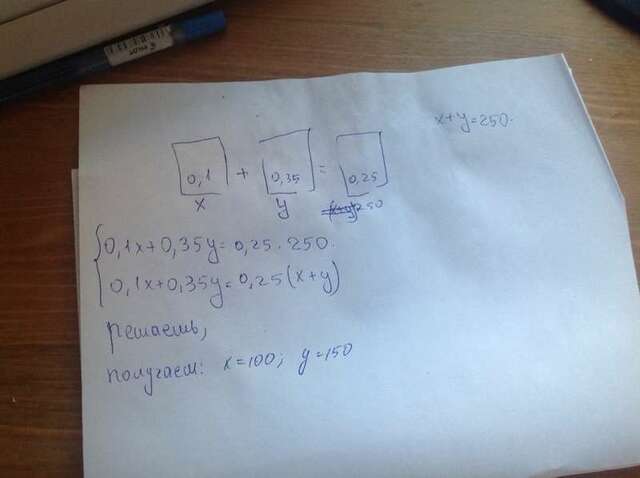 x+y=250.
0,1 + 0,35 = 0,25
x y 250
0,1x+0,35y=0,25·250.
0,1x+0,35y=0,25(x+y)
решаешь,
получаем: x=100; y=150